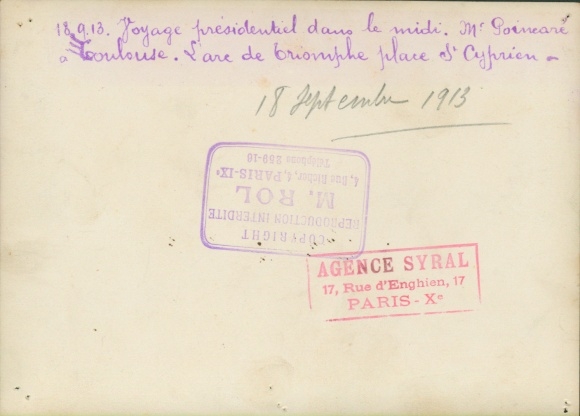 18.9.13. Voyage présidentiel dans le midi. Mr Poincaré
a Toulouse. L'arc de triomphe place St Cyprien -
18 Septembre 1913
COPYRIGHT
REPRODUCTION INTERDITE
M. ROL
4, Rue Richer, 4, PARIS-IXe
Téléphone 259-16
AGENCE SYRAL
17, Rue d'Enghien, 17
PARIS - Xe